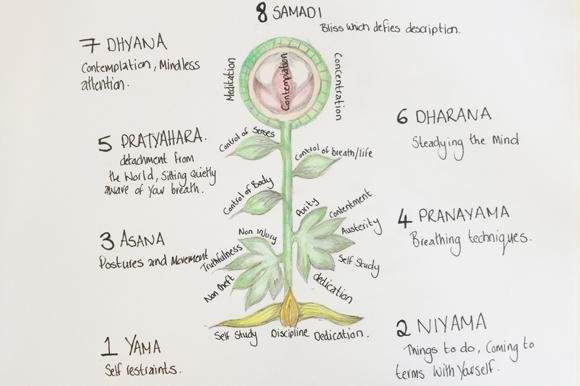 8 SAMADI
Bliss which defies description.
7 DHYANA
Contemplation, Mindless
attention.
Meditation
Contemplation
Concentration
6 DHARANA
Steadying the Mind
5 PRATYAHARA.
detachment from
the World, Sitting Quietly
aware of your breath.
Control of Senses
Control of breath/life
Control of Body
4 PRANAYAMA
Breathing techniques.
3 ASANA
Postures and Movement
Non Injury
Truthfulness
Non theft
Purity
Contentment
Austerity
Self Study
dedication
2 NIYAMA
Things to do, Coming to
terms with Yourself.
1 YAMA
Self restraints.
Self Study Discipline Dedication.